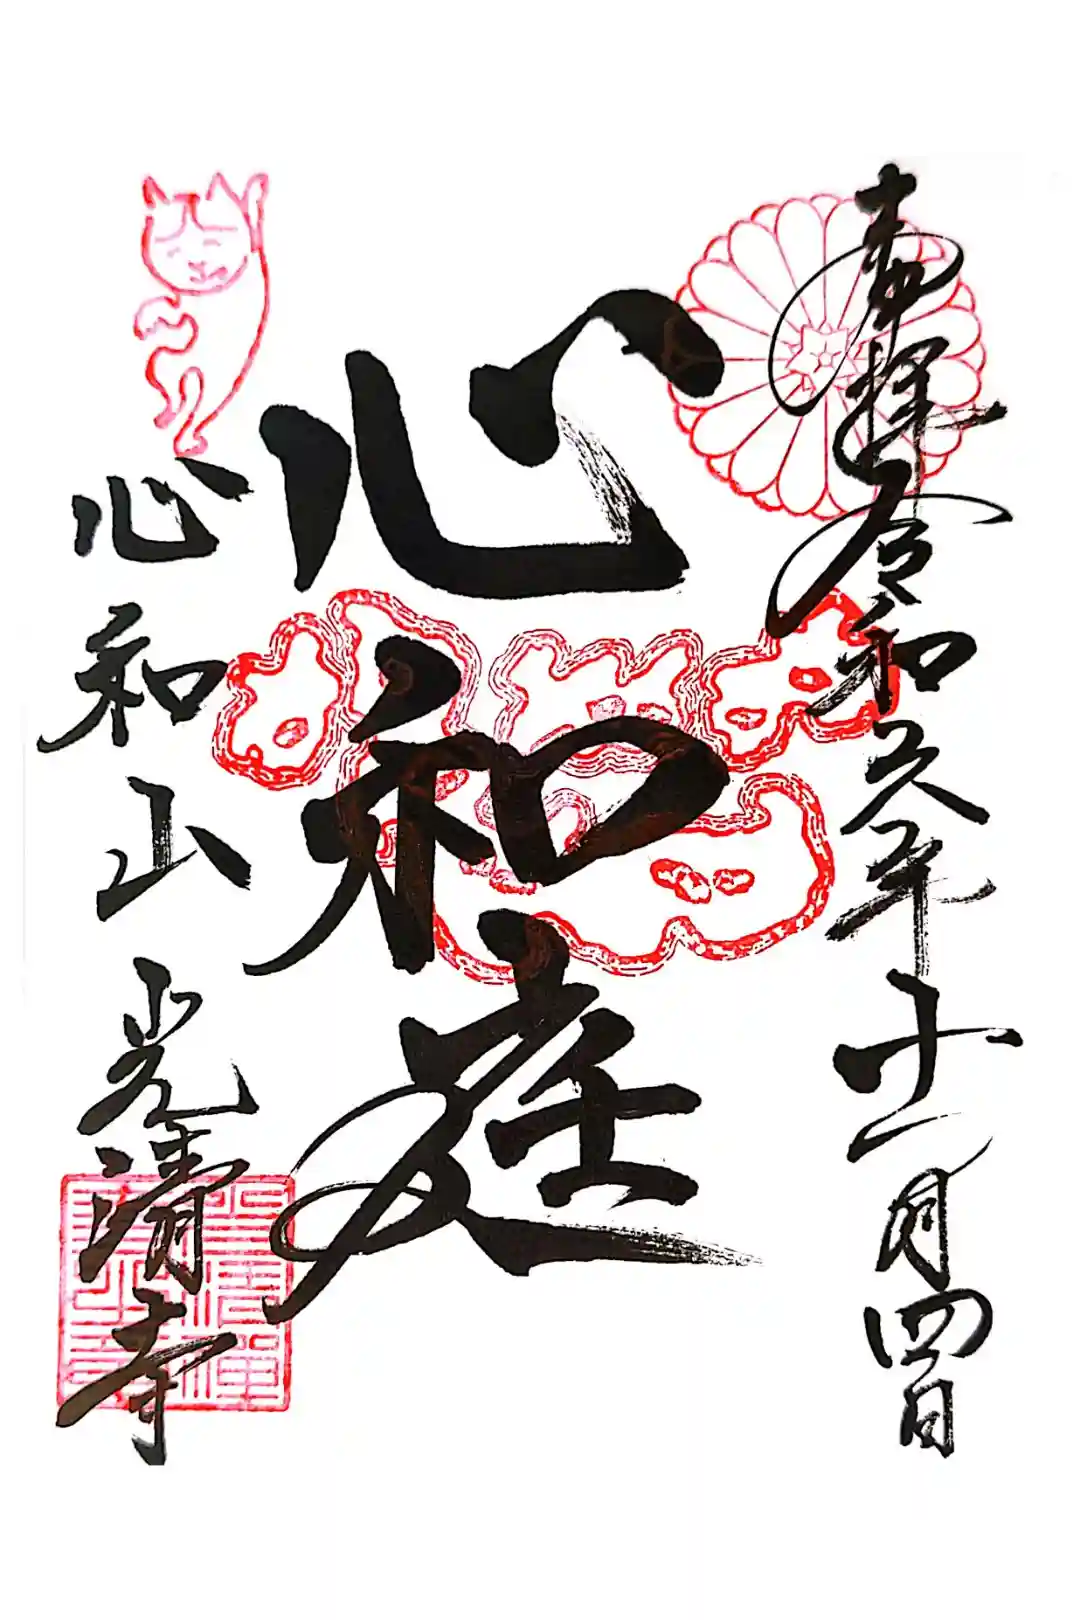 奉拝 令和五年十一月四日
心和庭
心和山 光清寺